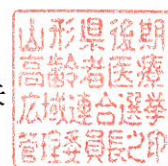 山形県後期
高齢者医療
広域連合選挙
管理委員長之印